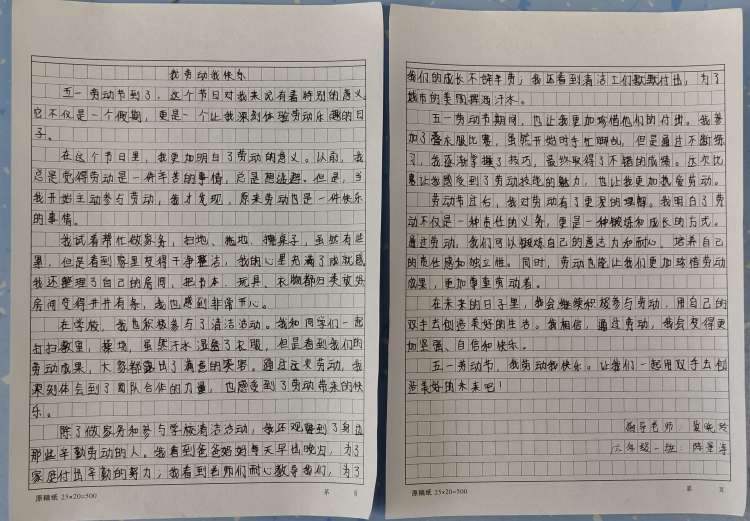 我劳动我快乐
五一劳动节到了，这个节日对我来说有着特别的意义。
它不仅是一个假期，更是一个让我深刻体验劳动乐趣的日
子。
在这个节日里，我更加明白了劳动的意义。以前，我
总是觉得劳动是一件辛苦的事情，总是想逃避。但是，当
我开始主动参与劳动，我才发现，原来劳动也是一件快乐
的事情。
我试着帮忙做家务，扫地、拖地、擦桌子，虽然有些
累，但是看到家里变得干净整洁，我的心里充满了成就感。
我还整理了自己的房间，把书本、玩具、衣服都归类放好
房间变得井井有条，我也感到非常开心。
在学校，我也积极参与了清洁活动。我和同学们一起
打扫教室，操场，虽然汗水湿透了衣服，但是看到我们的
劳动成果，大家都露出了满意的笑容。通过这次劳动，我
深刻体会到了团队合作的力量，也感受到了劳动带来的快
乐。
除了做家务和参与学校清洁活动，我还观察到了身边
那些辛勤劳动的人。我看到爸爸妈妈每天早出晚归，为了
家庭付出辛勤的努力；我看到老师们耐心教导我们，为了
原稿纸 25×20=500
第 页
我们的成长不辞辛劳；我还看到清洁工们默默付出，为了
城市的美丽挥洒汗水。
五一劳动节期间，也让我更加珍惜他们的付出。我参
加了叠衣服比赛，虽然开始时手忙脚乱，但是通过不断练
习，我逐渐掌握了技巧，最终取得了不错的成绩。这次比
赛让我感受到了劳动技能的魅力，也让我更加热爱劳动。
劳动节过后，我对劳动有了更深的理解。我明白了劳
动不仅是一种责任和义务，更是一种锻炼和成长的方式。
通过劳动，我们可以锻炼自己的意志力和耐心，培养自己
的责任感和独立性。同时，劳动也能让我们更加珍惜劳动
成果，更加尊重劳动者。
在未来的日子里，我会继续积极参与劳动，用自己的
双手去创造美好的生活。我相信，通过劳动，我会变得更
加坚强、自信和快乐。
五一劳动节，我劳动我快乐。让我们一起用双手去创
造美好的未来吧！
指导老师：
六年级一班：
原稿纸 25×20=500
第 页